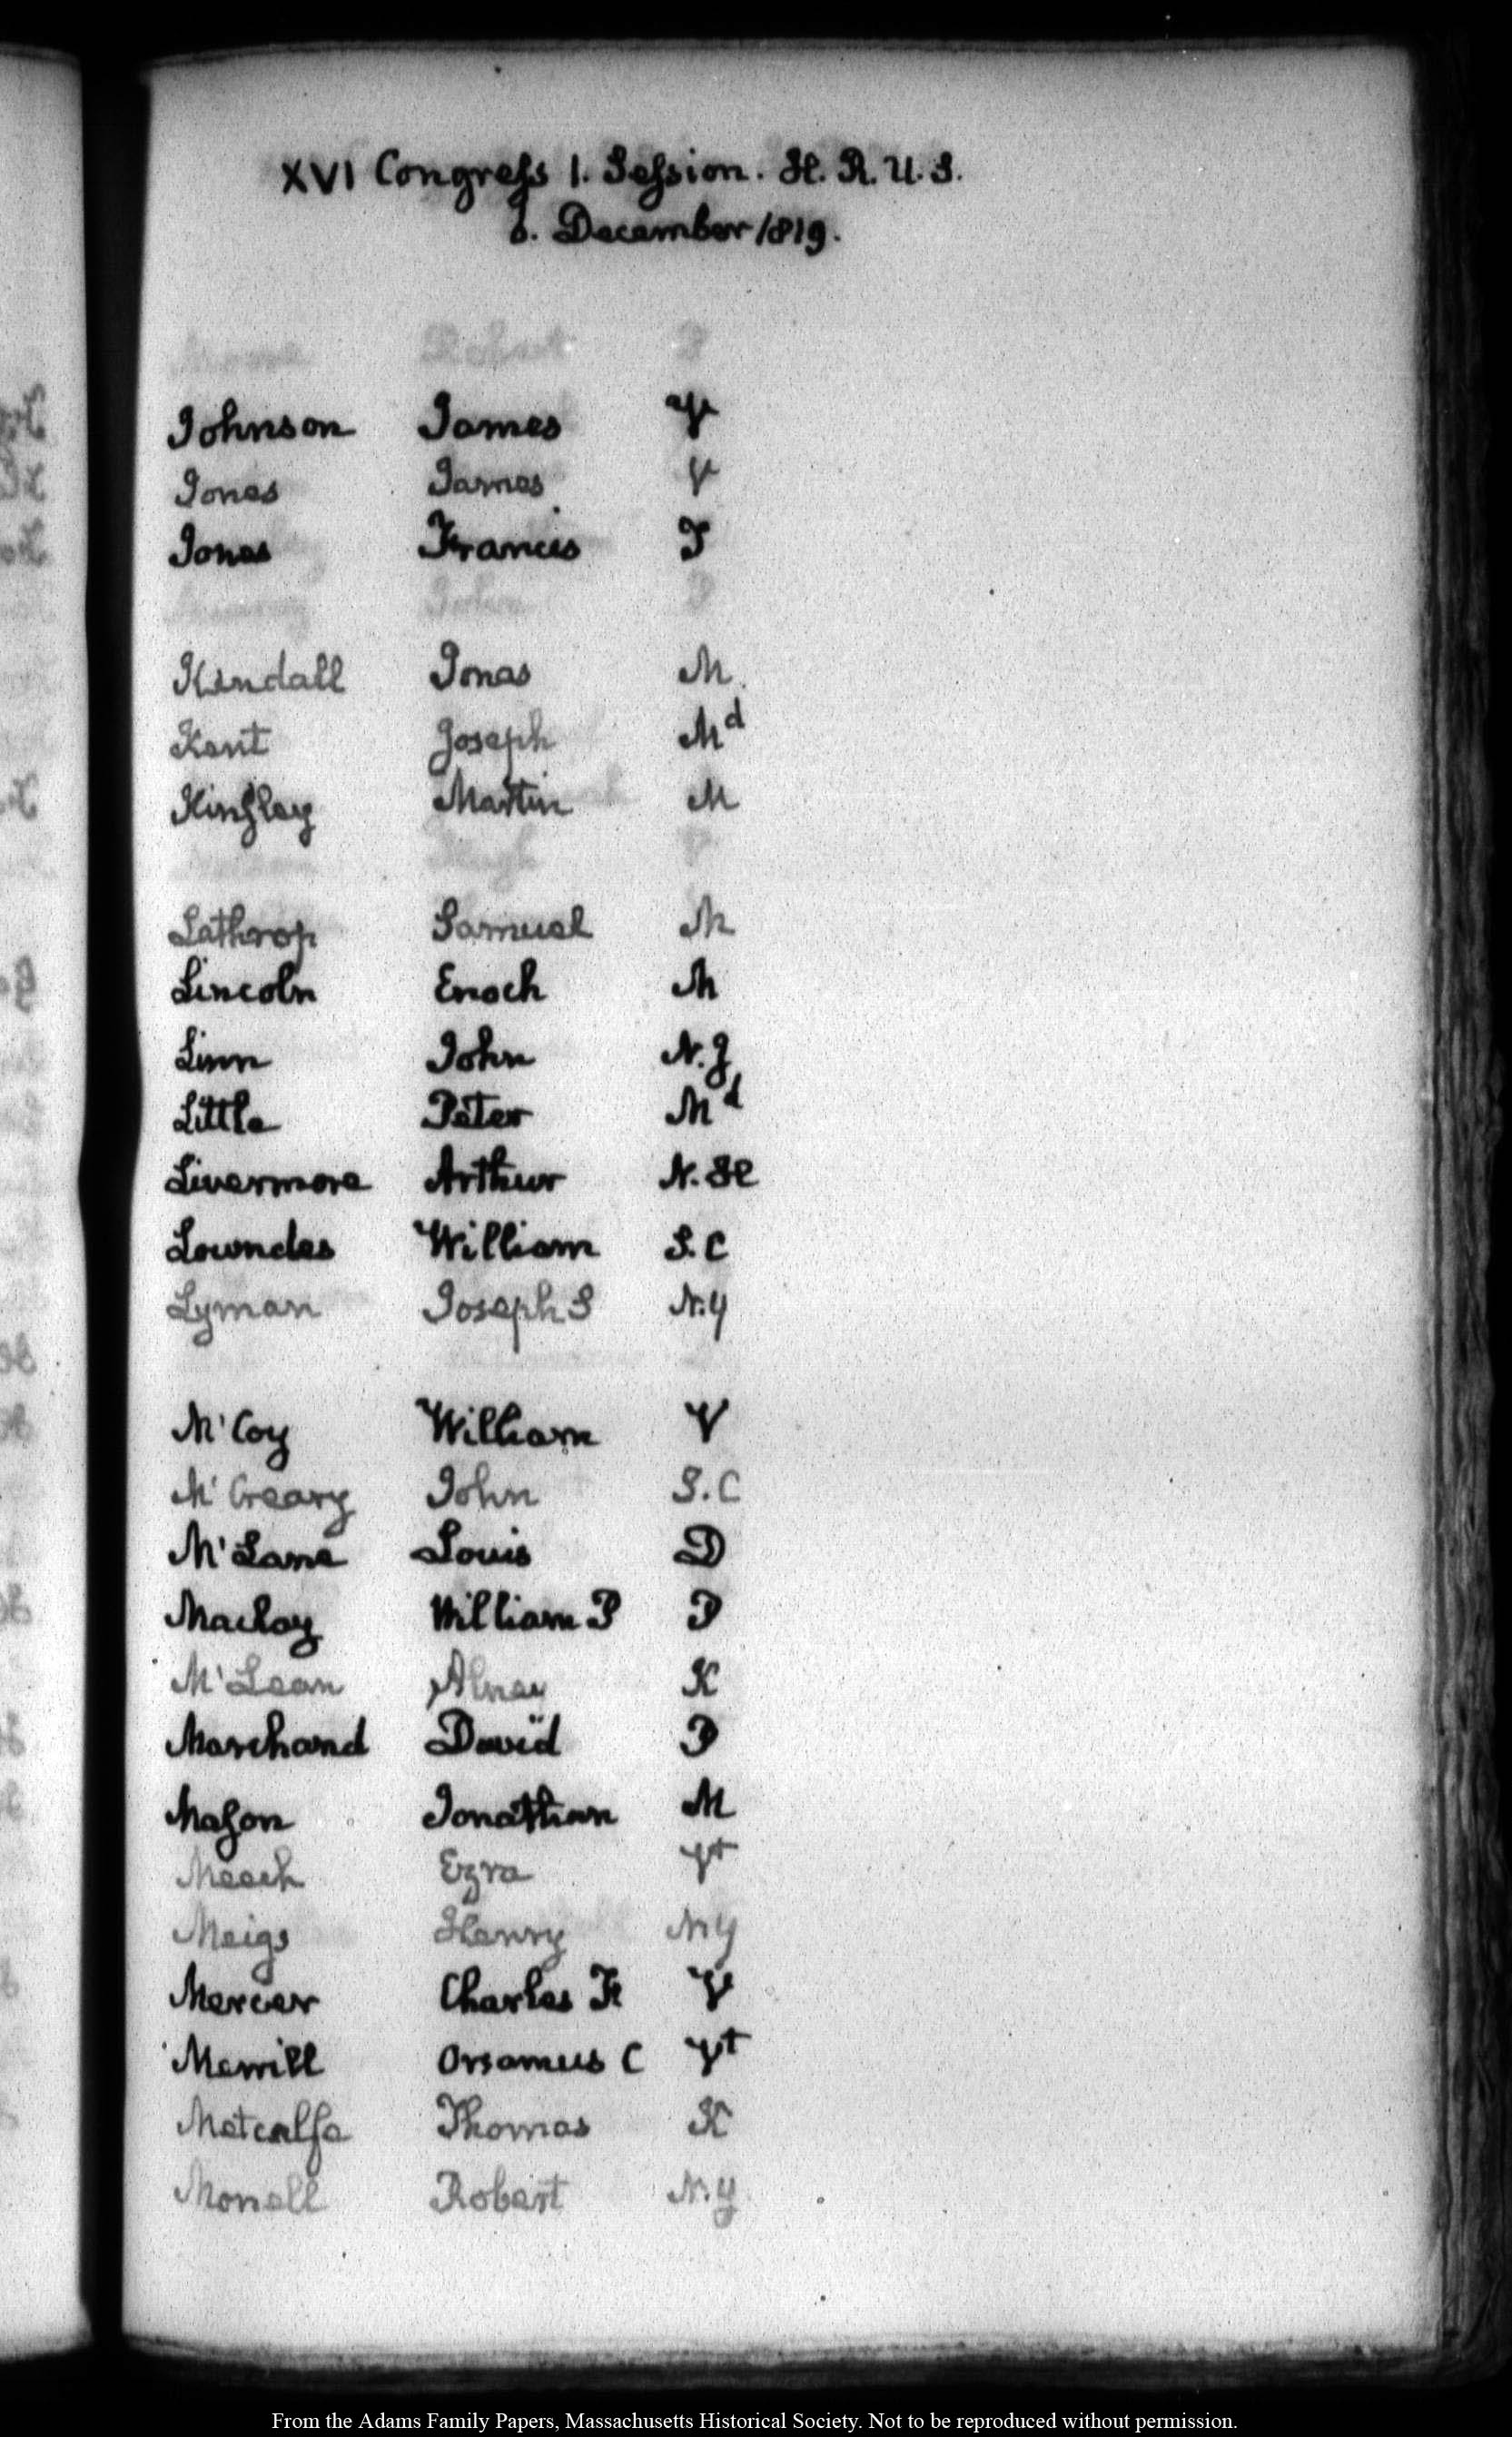 XVI Congress 1. Session. H. R. U. S.
6. December 1819.
Johnson James V
Jones James V
Jones Francis T
Kendall Jonas M.
Kent Joseph Md
Kinsley Martin M
Lathrop Samuel M
Lincoln Enoch M
Linn John N. J
Little Peter Md
Livermore Arthur N. H
Lowndes William S. C
Lyman Joseph S N. Y
M'Coy William V
M'Creary John S. C
M'Lane Louis D
Maclay William P P
M'Lean Alney K
Marchand David P
Mason Jonathan M
Meech Ezra Vt
Meigs Henry N Y
Mercer Charles F. V
Merrill Orsamus C Vt
Metcalfe Thomas K
Monell Robert N. Y
From the Adams Family Papers, Massachusetts Historical Society. Not to be reproduced without permission.